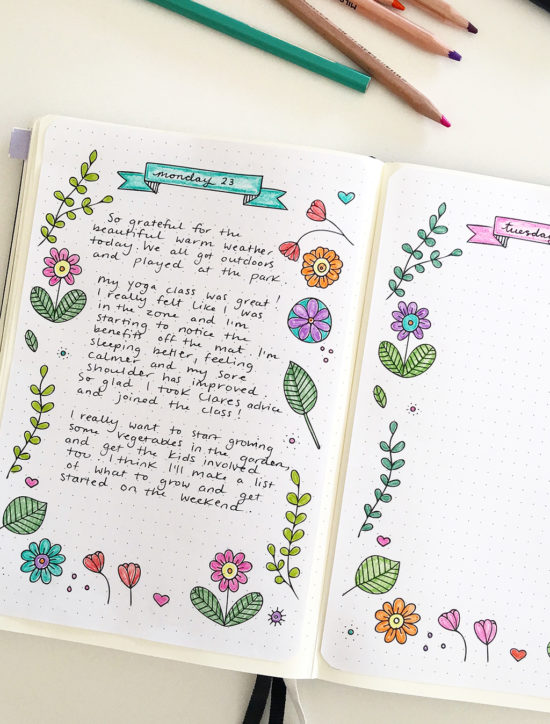 monday 23
So grateful for the
beautiful warm weather
today. We all got outdoors
and played at the park.
My yoga class was great!
I really felt like I was
in the zone and I'm
starting to notice the
benefits off the mat. I'm
sleeping better, feeling
calmer and my sore
shoulder has improved.
So glad I took Clares advice
and joined the class!
I really want to start growing
some vegetables in the garden,
and get the kids involved
too. I think I'll make a list
of what to grow and get
started on the weekend.
tuesday